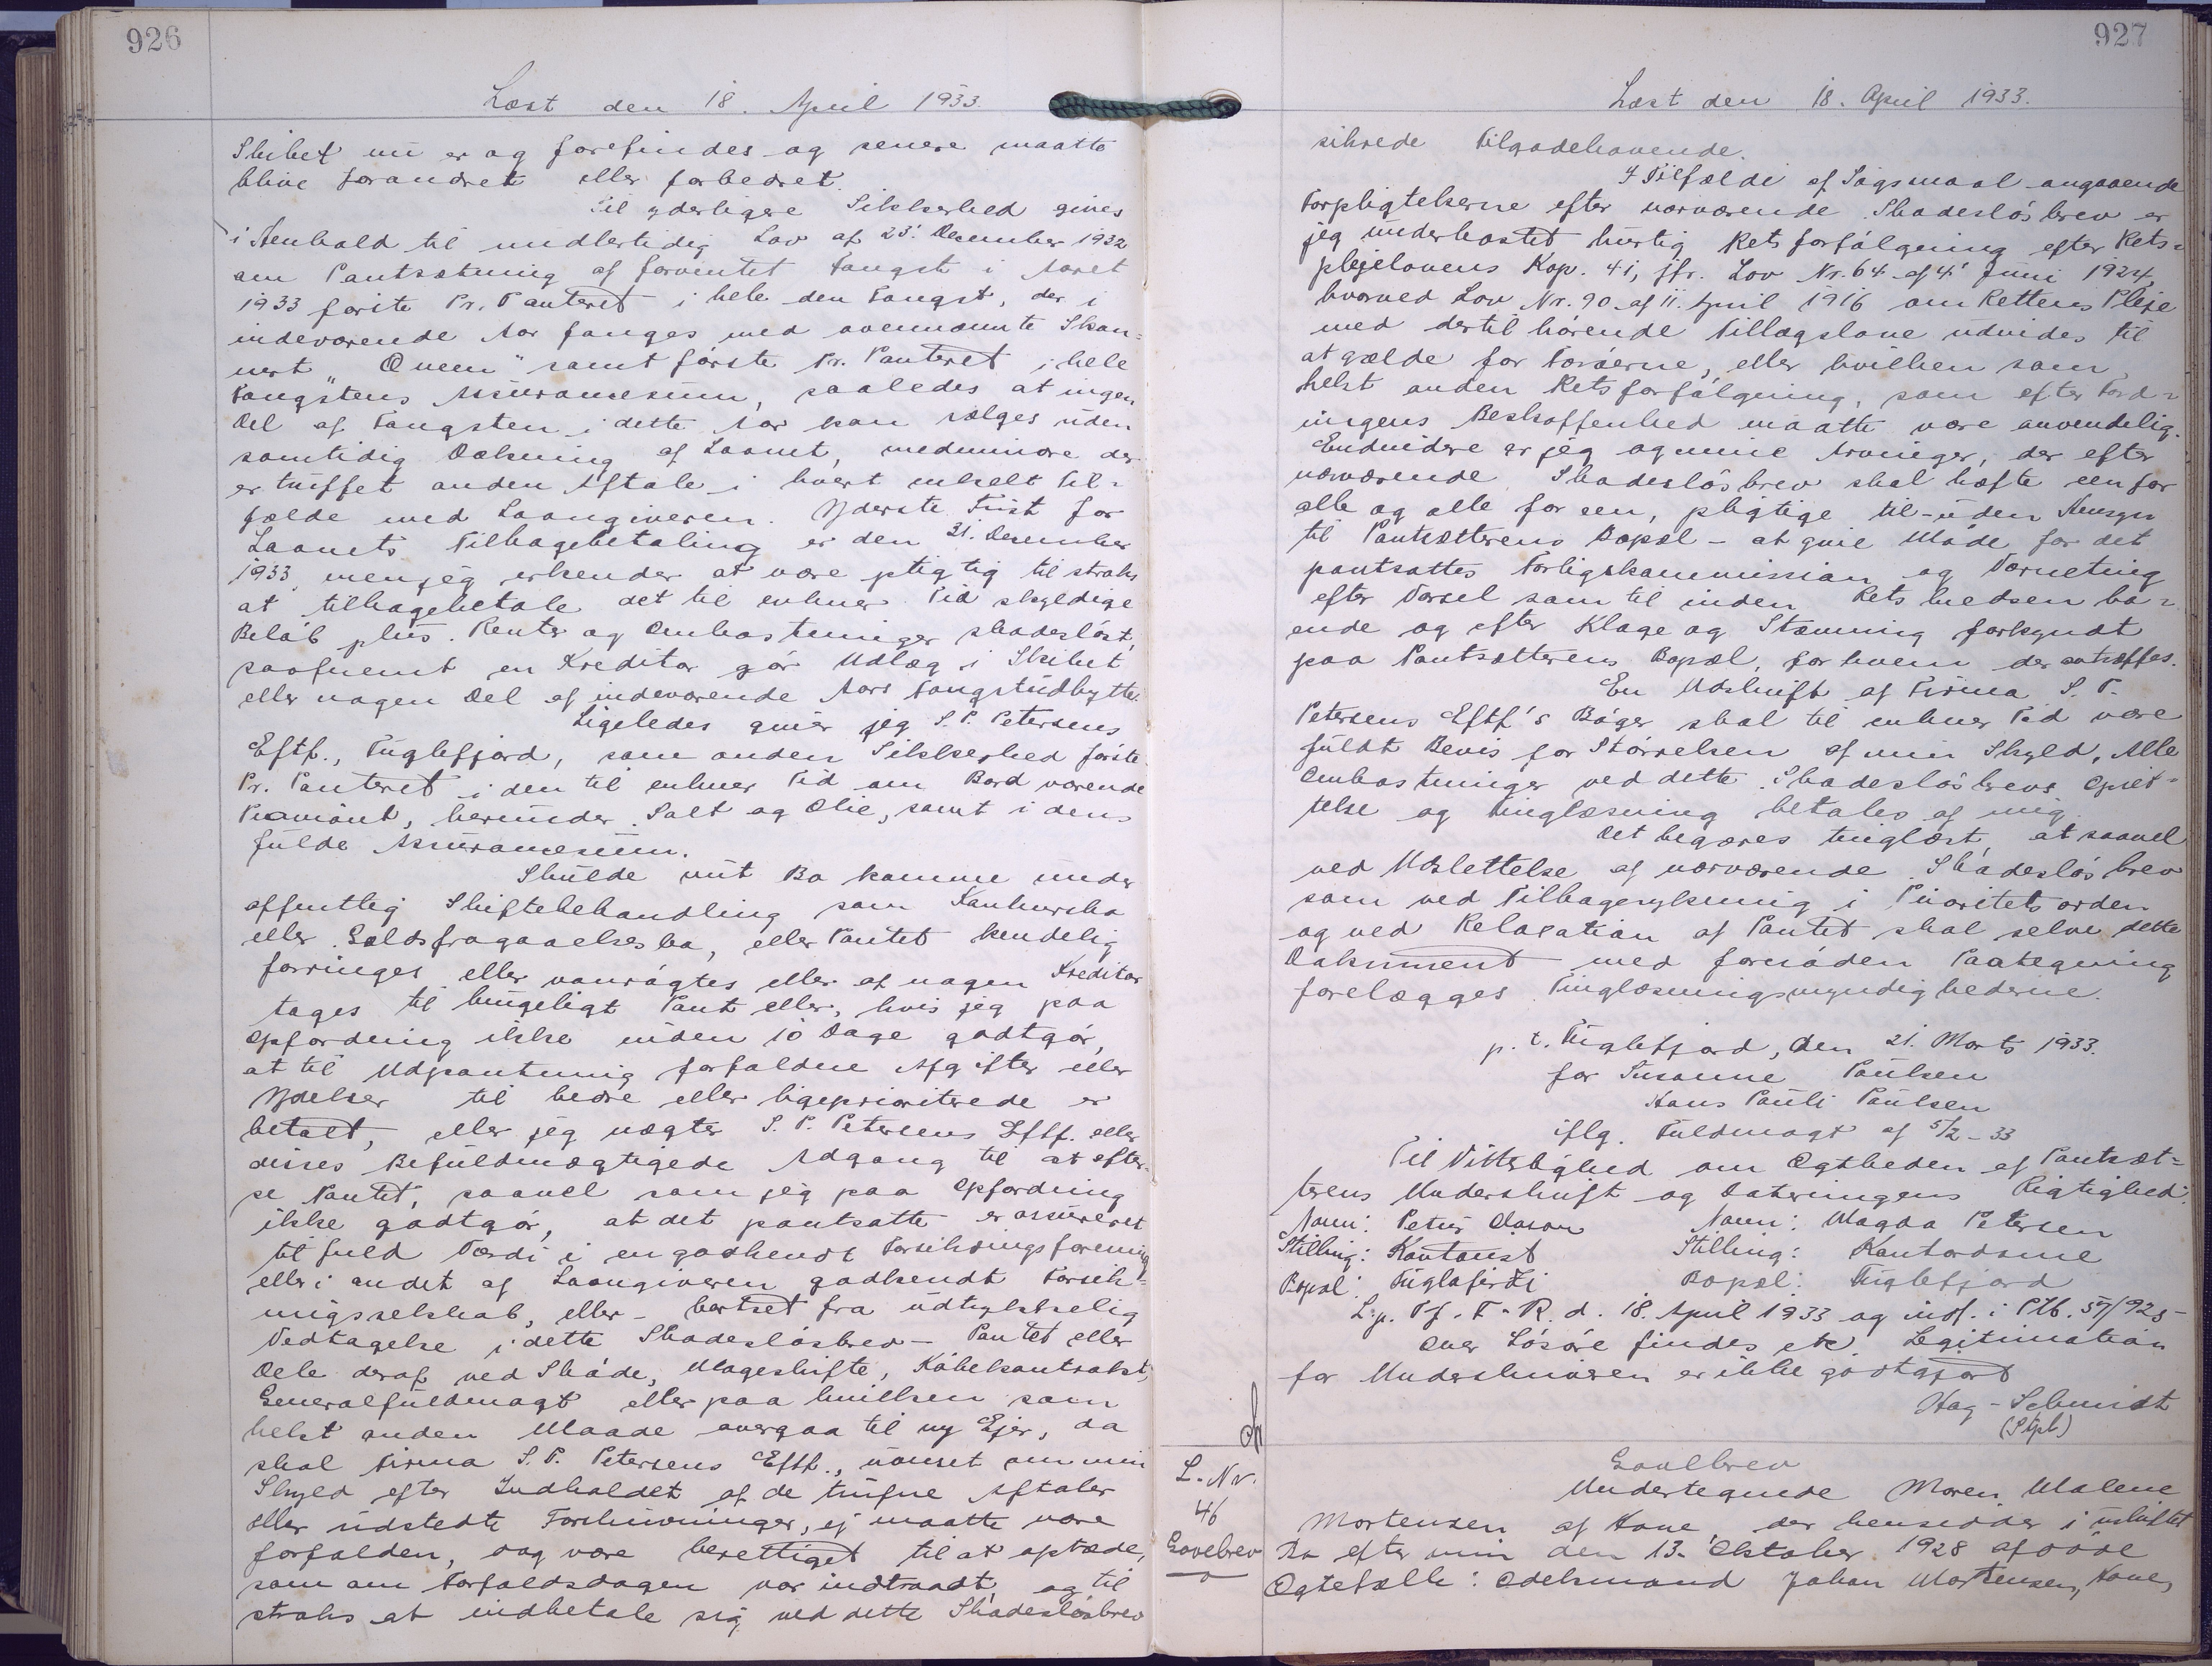 926
Læst den 18. April 1933.
Skibet nu er og forefindes og senere maatte
blive forandret eller forbedret.
Til yderligere Sikkerhed gives
i Henhold til midlertidig Lov af 23. December 1932
om Pantsætning af forventet Fangst i Aaret
1933 første Pr. Panteret i hele den Fangst, der i
indeværende Aar fanges med ovennævnte Skon=
nert "Queen" samt første Pr. Panteret i hele
Fangstens Assurancesum, saaledes at ingen
Del af Fangsten i dette Aar kan sælges uden
samtidig Dækning af Laanet, medmindre der
er truffet anden Aftale i hvert enkelt Til=
fælde med Laangiveren. Yderste Frist for
Laanets Tilbagebetaling er den 31. December
1933, men jeg erkender at være pligtig til straks
at tilbagebetale det til enhver Tid skyldige
Beløb plus Renter og Omkostninger skadesløst,
saafremt en Kreditor gør Udlæg i Skibet
eller nogen Del af indeværende Aars Fangstudbytte.
Ligeledes giver jeg S. P. Petersens
Eftf., Fuglefjord, som anden Sikkerhed første
Pr. Panteret i den til enhver Tid om Bord værende
Proviant, herunder Salt og Olie, samt i dens
fulde Assurancesum.
Skulde mit Bo komme under
offentlig Skiftebehandling som Konkursbo
eller Gældsfragaaelsesbo, eller Pantet kendelig
forringes eller vanrøgtes eller af nogen Kreditor
tages til brugeligt Pant eller, hvis jeg paa
Opfordring ikke inden 10 Dage godtgør,
at til Udpantning forfaldne Afgifter eller
Ydelser til bedre eller ligeprioriterede er
betalt, eller jeg nægter S. P. Petersens Eftf. eller
disses Befuldmægtigede Adgang til at efter=
se Pantet, saavel som jeg paa Opfordring
ikke godtgør, at det pantsatte er assureret
til fuld Værdi i en godkendt Forsikringsforening
eller i andet af Laangiveren godkendt Forsik=
ringsselskab, eller - bortset fra udtrykkelig
Vedtagelse i dette Skadesløsbrev - Pantet eller
Dele deraf ved Skøde, Mageskifte, Købekontrakt,
Generalfuldmagt eller paa hvilken som
helst anden Maade overgaa til ny Ejer, da
skal Firma S. P. Petersens Eftf., uanset om min
Skyld efter Indholdet af de trufne Aftaler
eller udstedte Forskrivninger, ej maatte være
forfalden, dog være berettiget til at optræde,
som om Forfaldsdagen var indtraadt, og til
straks at indbetale sig ved dette Skadesløsbrev
927
Læst den 18. April 1933.
sikrede Tilgodehavende.
I Tilfælde af Søgsmaal angaaende
Forpligtelserne efter nærværende Skadesløsbrev er
jeg underkastet hurtig Retsforfølgning efter Rets=
plejelovens Kap. 41, jfr. Lov Nr. 64 af 4. Juni 1924,
hvorved Lov Nr. 90 af 11. April 1916 om Rettens Pleje
med dertil hørende Tillægslove udvides til
at gælde for Færøerne, eller hvilken som
helst anden Retsforfølgning, som efter Ford=
ringens Beskaffenhed maatte være anvendelig.
Endvidere er jeg og mine Arvinger, der efter
nærværende Skadesløsbrev skal hæfte een for
alle og alle for een, pligtige til - uden Hensyn
til Pantsætterens Bopæl - at give Møde for det
pantsattes Forligskommission og Værneting
efter Varsel som til inden Retskredsen bo=
ende og efter Klage og Stævning forkyndt
paa Pantsætterens Bopæl, for hvem der antræffes.
En Udskrift af Firma S. P.
Petersens Eftf's Bøger skal til enhver Tid være
fuldt Bevis for Størrelsen af min Skyld. Alle
Omkostninger ved dette Skadesløsbrevs Opret=
telse og Tinglæsning betales af mig.
Det begæres tinglæst, at saavel
ved Udslettelse af nærværende Skadesløsbrev
som ved Tilbagerykning i Prioritetsorden
og ved Relaxation af Pantet skal selve dette
Dokument med fornøden Paategning
forelægges Tinglæsningsmyndighederne.
p. t. Fuglefjord, den 21. Marts 1933.
for Susanne Poulsen
Hans Pauli Poulsen
iflg. Fuldmagt af 5/2-33
Til Vitterlighed om Ægtheden af Pantsæt=
terens Underskrift og Dateringens Rigtighed:
Navn: Petur Olason Navn: Magda Petersen
Stilling: Kontorist Stilling: Kontordame
Bopæl: Fuglafirði Bopæl: Fuglefjord
L. p. Tf. F. R. d. 18. April 1933 og indf. i Ptb. 57/925-
over Løsøre findes etc. Legitimation
for Underskriveren er ikke godtgjort
Hag-Schmidt
(Stpl.)
L. Nr.
46
Gavebrev
Gavebrev
Undertegnede Maren Malene
Mortensen af Hove, der hensidder i uskiftet
Bo efter min den 13. Oktober 1928 afdøde
Ægtefælle: Odelsmand Johan Mortensen, Hove,